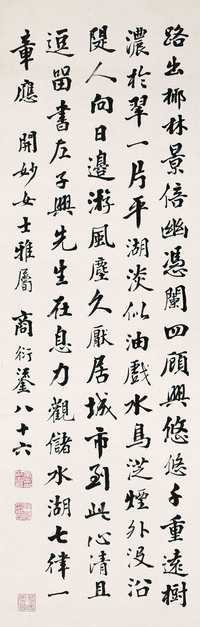 路出椰林景倍幽憑闌四顧興悠悠千重遠樹
濃於翠一片平湖淡似油戲水鳥從煙外沒沿
隄人向日邊游風塵久厭居城市到此心清且
逗留書左子興先生在息力觀儲水湖七律一
章應開妙女士雅屬商衍鎏八十六